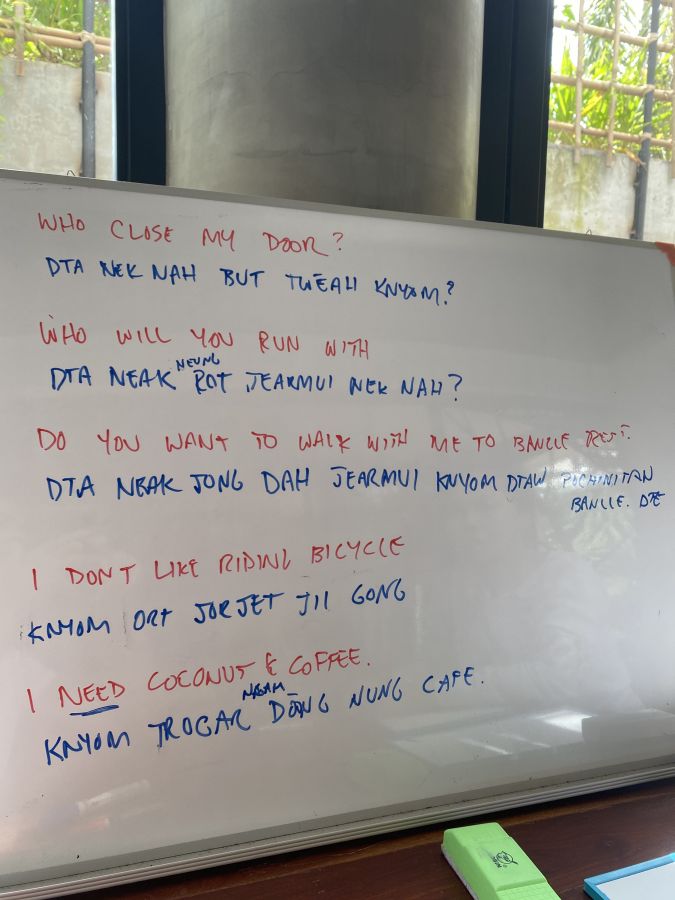 WHO CLOSE MY DOOR?
DTA NEK NAH BUT TWEAH KNYOM?
WHO WILL YOU RUN WITH
NEUNG
DTA NEAK ROT JEARMUI NEK NAH?
DO YOU WANT TO WALK WITH ME TO
DTA NEAK JONG DAH JEARMUI KNYOM DTAW POCHINITAN
DTE
I DON'T LIKE RIDING BICYCLE
KNYOM ORT JORJET JII GONG
I NEED COCONUT & COFFEE.
KNYOM TROGAR DONG NUNG CAFE.